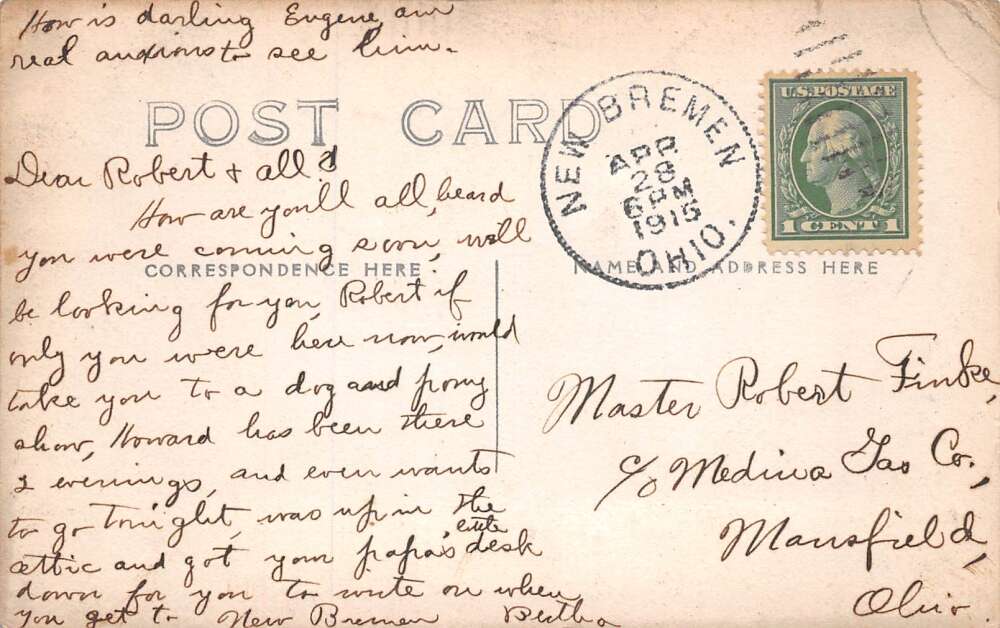 How is darling Eugene, am
real anxious to see him.
POST CARD
NEW BREMEN
APR
28
6 PM
1915
OHIO.
U.S. POSTAGE
1 CENT 1
Dear Robert & all:
How are you'll all, heard
you were coming soon, will
CORRESPONDENCE HERE
NAME AND ADDRESS HERE
be looking for you, Robert if
only you were here now, would
take you to a dog and pony
show, Howard has been there
2 evenings, and even wants
to go tonight, was up in the
attic and got your papa's little desk
down for you to write on when
you get to New Bremen Bertha
Master Robert Finke,
c/o Medina Gas Co.,
Mansfield,
Ohio.